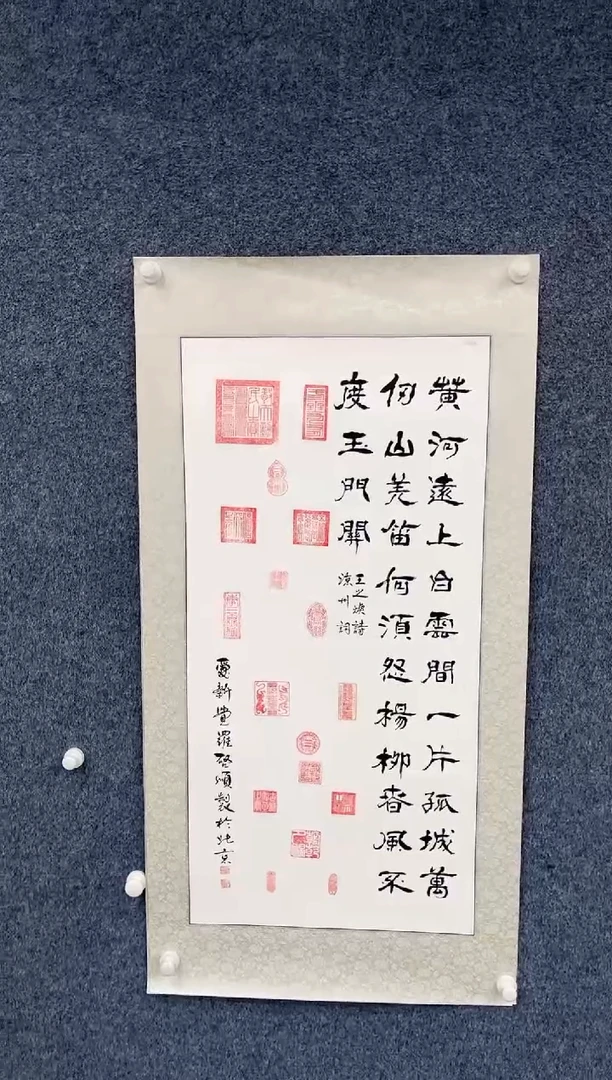 黃河遠上白雲間一片孤城萬
仞山羌笛何須怨楊柳春風不
度玉門關
王之渙詩
涼州詞
愛新覺羅啓製於北京